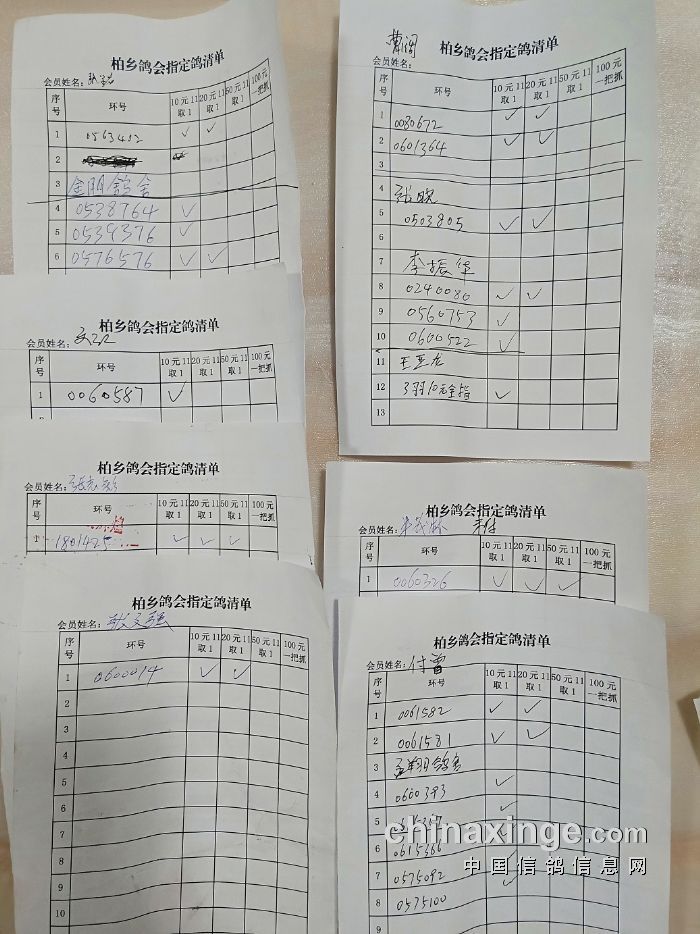 柏乡鸽会指定鸽清单
会员姓名:
序号 环号 10元11取1 20元11取1 50元11取1 100元一把抓
1 0563452 ✓ ✓
2
3 金朋鸽舍
4 0538764 ✓
5 0539376 ✓
6 0576576 ✓ ✓
柏乡鸽会指定鸽清单
会员姓名:
序号 环号 10元11取1 20元11取1 50元11取1 100元一把抓
1 0060587 ✓
柏乡鸽会指定鸽清单
会员姓名:
序号 环号 10元11取1 20元11取1 50元11取1 100元一把抓
1 1801425 ✓ ✓ ✓
柏乡鸽会指定鸽清单
会员姓名: 张文强
序号 环号 10元11取1 20元11取1 50元11取1 100元一把抓
1 0600014 ✓ ✓
2
3
4
5
6
7
8
9
10
柏乡鸽会指定鸽清单
会员姓名:
序号 环号 10元11取1 20元11取1 50元11取1 100元一把抓
1 0080672 ✓ ✓
2 0601364 ✓ ✓
3
4 张晓
5 0503805 ✓ ✓
6
7 李振华
8 0240080 ✓ ✓
9 0560753 ✓
10 0600522 ✓
11
12 3羽10元全指 ✓
13
柏乡鸽会指定鸽清单
会员姓名:
序号 环号 10元11取1 20元11取1 50元11取1 100元一把抓
1 0060326 ✓ ✓ ✓
柏乡鸽会指定鸽清单
会员姓名: 付雷
序号 环号 10元11取1 20元11取1 50元11取1 100元一把抓
1 0061582 ✓ ✓
2 0061581 ✓ ✓
3
4 0600393 ✓
5 ✓
6 0615366
7 0575092
8 0575100
9
chinaxinge.com
中国信鸽信息网